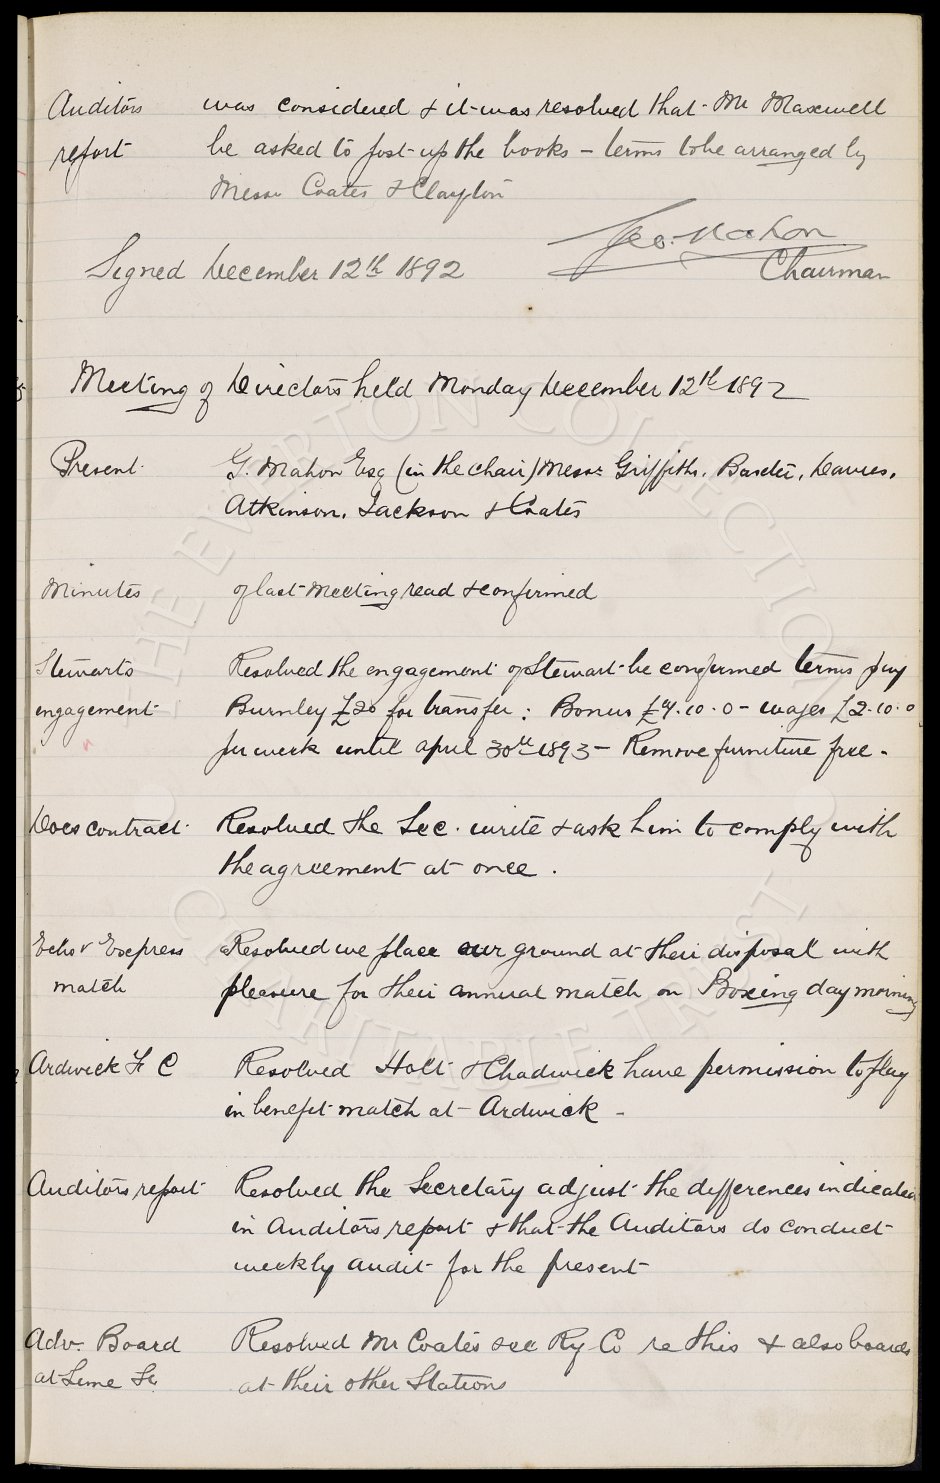 Auditors was considered & it was resolved that Mr Maxwell
report be asked to post up the books – terms to be arranged by
Messrs Coates & Clayton
Geo. Mahon
Signed December 12th 1892 Chairman
Meeting of Directors held Monday December 12th 1892
Present G. Mahon Esq (in the chair) Messrs Griffiths, Baxter, Davies,
Atkinson, Jackson & Coates
Minutes of last Meeting read & confirmed
Stewarts Resolved the engagement of Stewart be confirmed terms pay
engagement Burnley £20 for transfer: Bonus £ 10.0 – wages £2.10.0
per week until april 30th 1893 – Remove furniture free –
Does contract Resolved the Sec. write & ask him to comply with
the agreement at once.
Echo v Express Resolved we place our ground at their disposal with
match pleasure for their annual match on Boxing day morning
Ardwick F C Resolved Holt & Chadwick have permission to play
in benefit match at Ardwick –
Auditors report Resolved the Secretary adjust the differences indicated
in Auditors report & that the Auditors do conduct
weekly audit for the present
Adv. Board Resolved Mr Coates see Ry Co re this & also boards
at Lime St. at their other Stations
THE EVERTON COLLECTION
CHARITABLE TRUST